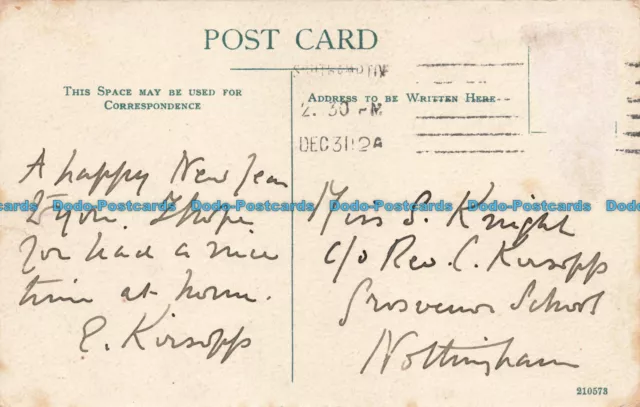 POST CARD
THIS SPACE MAY BE USED FOR
CORRESPONDENCE
ADDRESS TO BE WRITTEN HERE
2.30 PM
DEC 31 24
A happy New Year
to you. I hope
you had a nice
time at home.
E. Kirsopp
Miss S. Knight
c/o Rev. C. Kirsopp
Grosvenor School
Nottingham
Dodo-Postcards Dodo-Postcards Dodo-Postcards Dodo-Postcards
210573